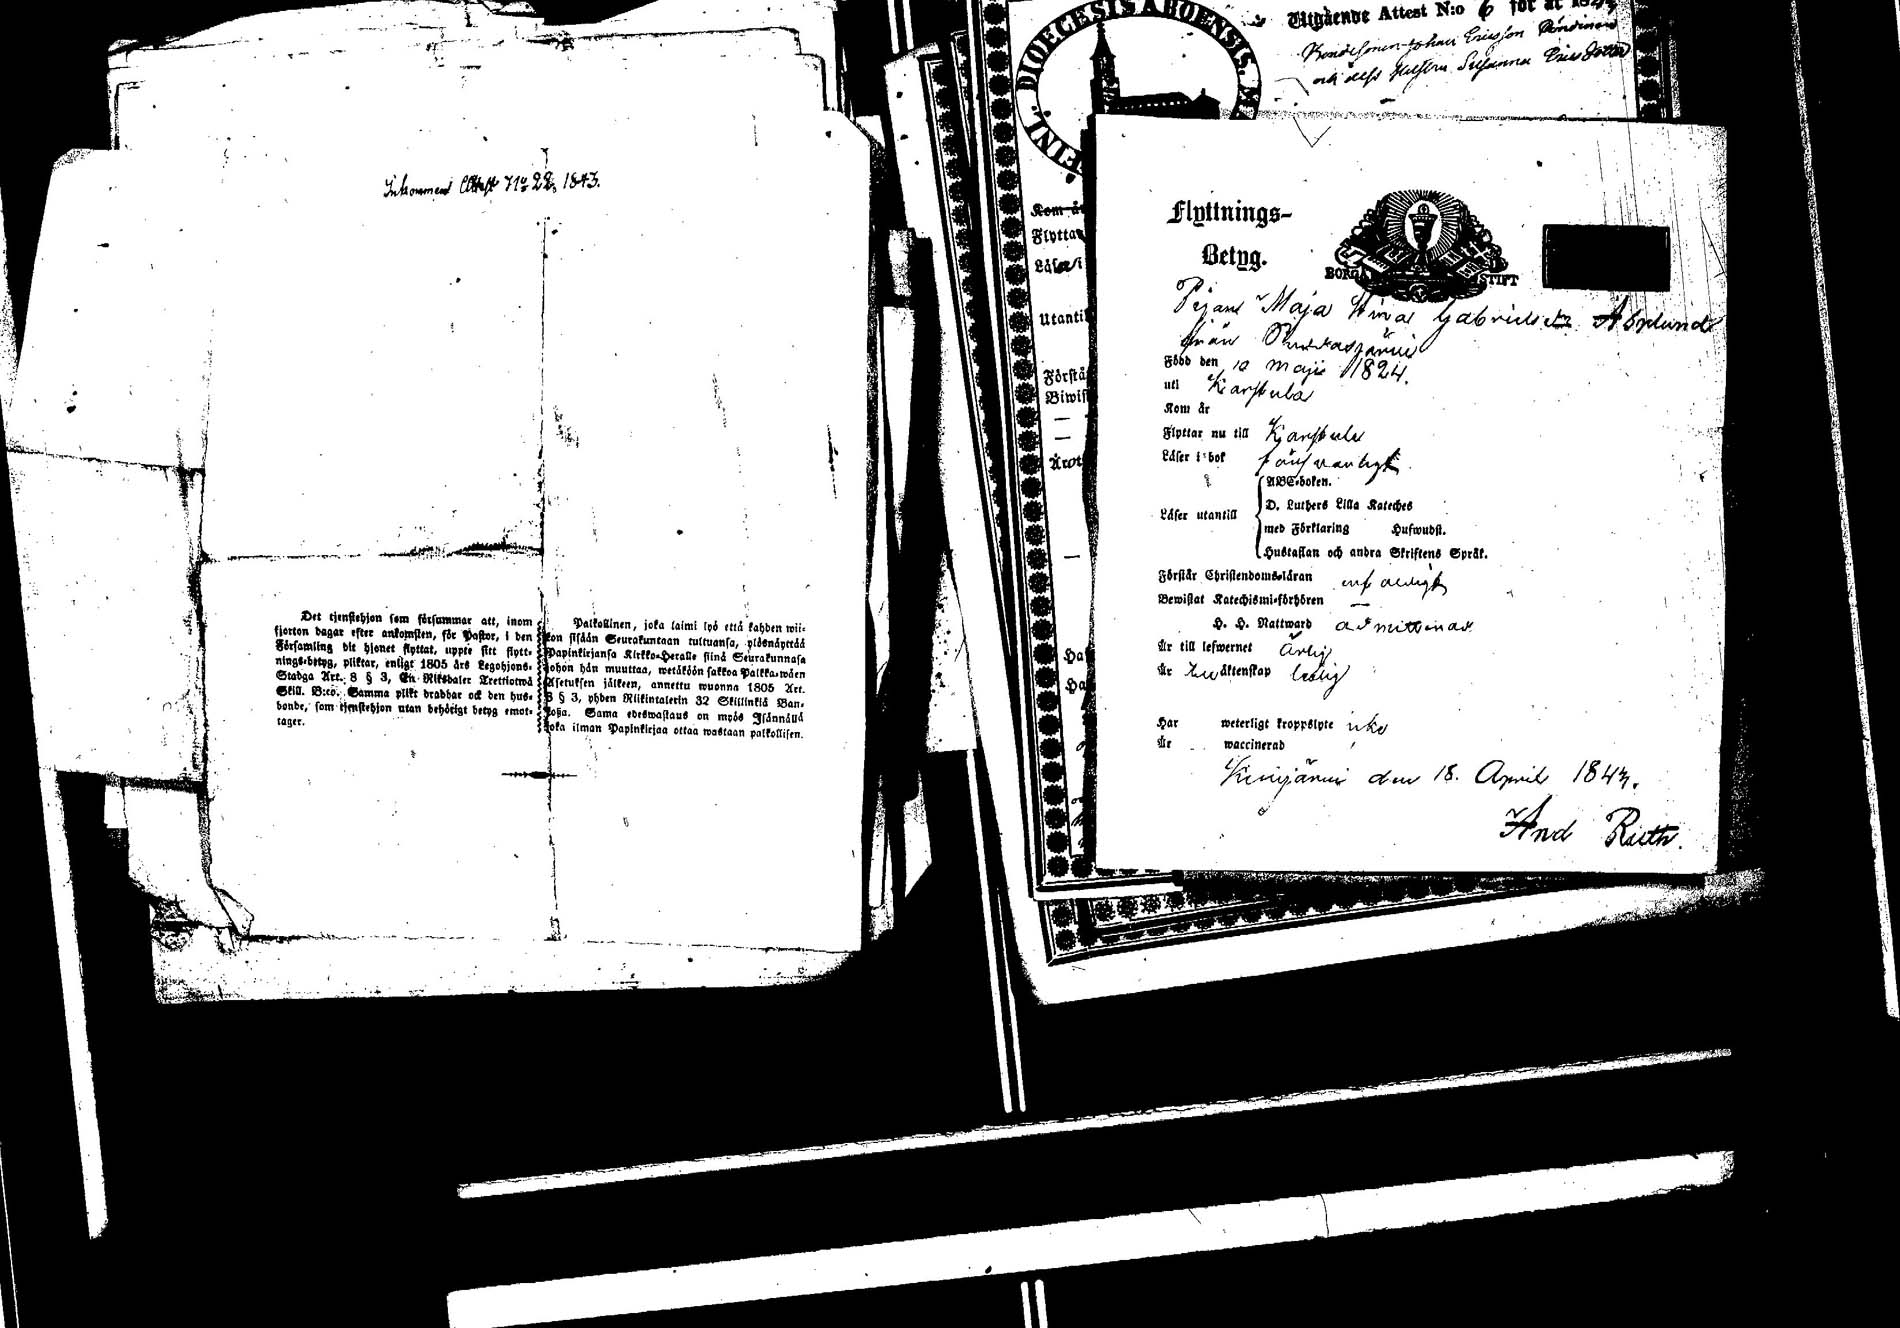 Inkommend Attest No 22, 1843.
Det tjenstehjon som försummar att, inom
fjorton dagar efter ankomsten, för Pastor, i den
Församling dit hjonet flyttat, uppte sitt flytt-
nings-betyg, pliktar, enligt 1805 års Legohjons-
Stadga Art. 8 § 3, En Riksdaler Trettiotwå
Skill. B:co. Samma plikt drabbar ock den hus-
bonde, som tjenstehjon utan behörigt betyg emot-
tager.
Palkollinen, joka laimi lyö että kahden wii-
kon sisään Seurakuntaan tultuansa, ylösnäyttää
Papinkirjansa Kirkko-Heralle siinä Seurakunnasa
johon hän muuttaa, wetäköön sakkoa Palkka-wäen
Asetuksen jälkeen, annettu wuonna 1805 Art.
8 § 3, yhden Riikintalerin 32 Skillinkiä Ban-
koßa. Sama edeswastaus on myös Isännällä
joka ilman Papinkirjaa ottaa wastaan palkollisen.
DIOECESIS ABOENSIS.
Utgående Attest N:o 6 för år 1843
Johan Ericsson
och dess Hustru Susanna Ericsdotter
Kom år
Flytta
Läser i
Utanti
Förstå
Bewist
Ha
Ha
Flyttnings-
Betyg.
BORGÅ STIFT
Pigan Maja Stina Gabrielsdr Asplund
från
Född den 10 maji 1824.
uti Karstula
Kom år
Flyttar nu till Karstula
Läser i bok försvarligt
Läser utantill
ABC-boken.
D. Luthers Lilla Kateches
med Förklaring Hufwudst.
Hustaflan och andra Skriftens Språk.
Förstår Christendoms-läran enfaldigt
Bewistat Katechismi-förhören —
H. H. Nattward admitteras
Är till lefwernet Ärlig
Är till äktenskap ledig
Har weterligt kroppslyte icke
Är waccinerad
Kivijärvi den 18. April 1843.
And Ruth.